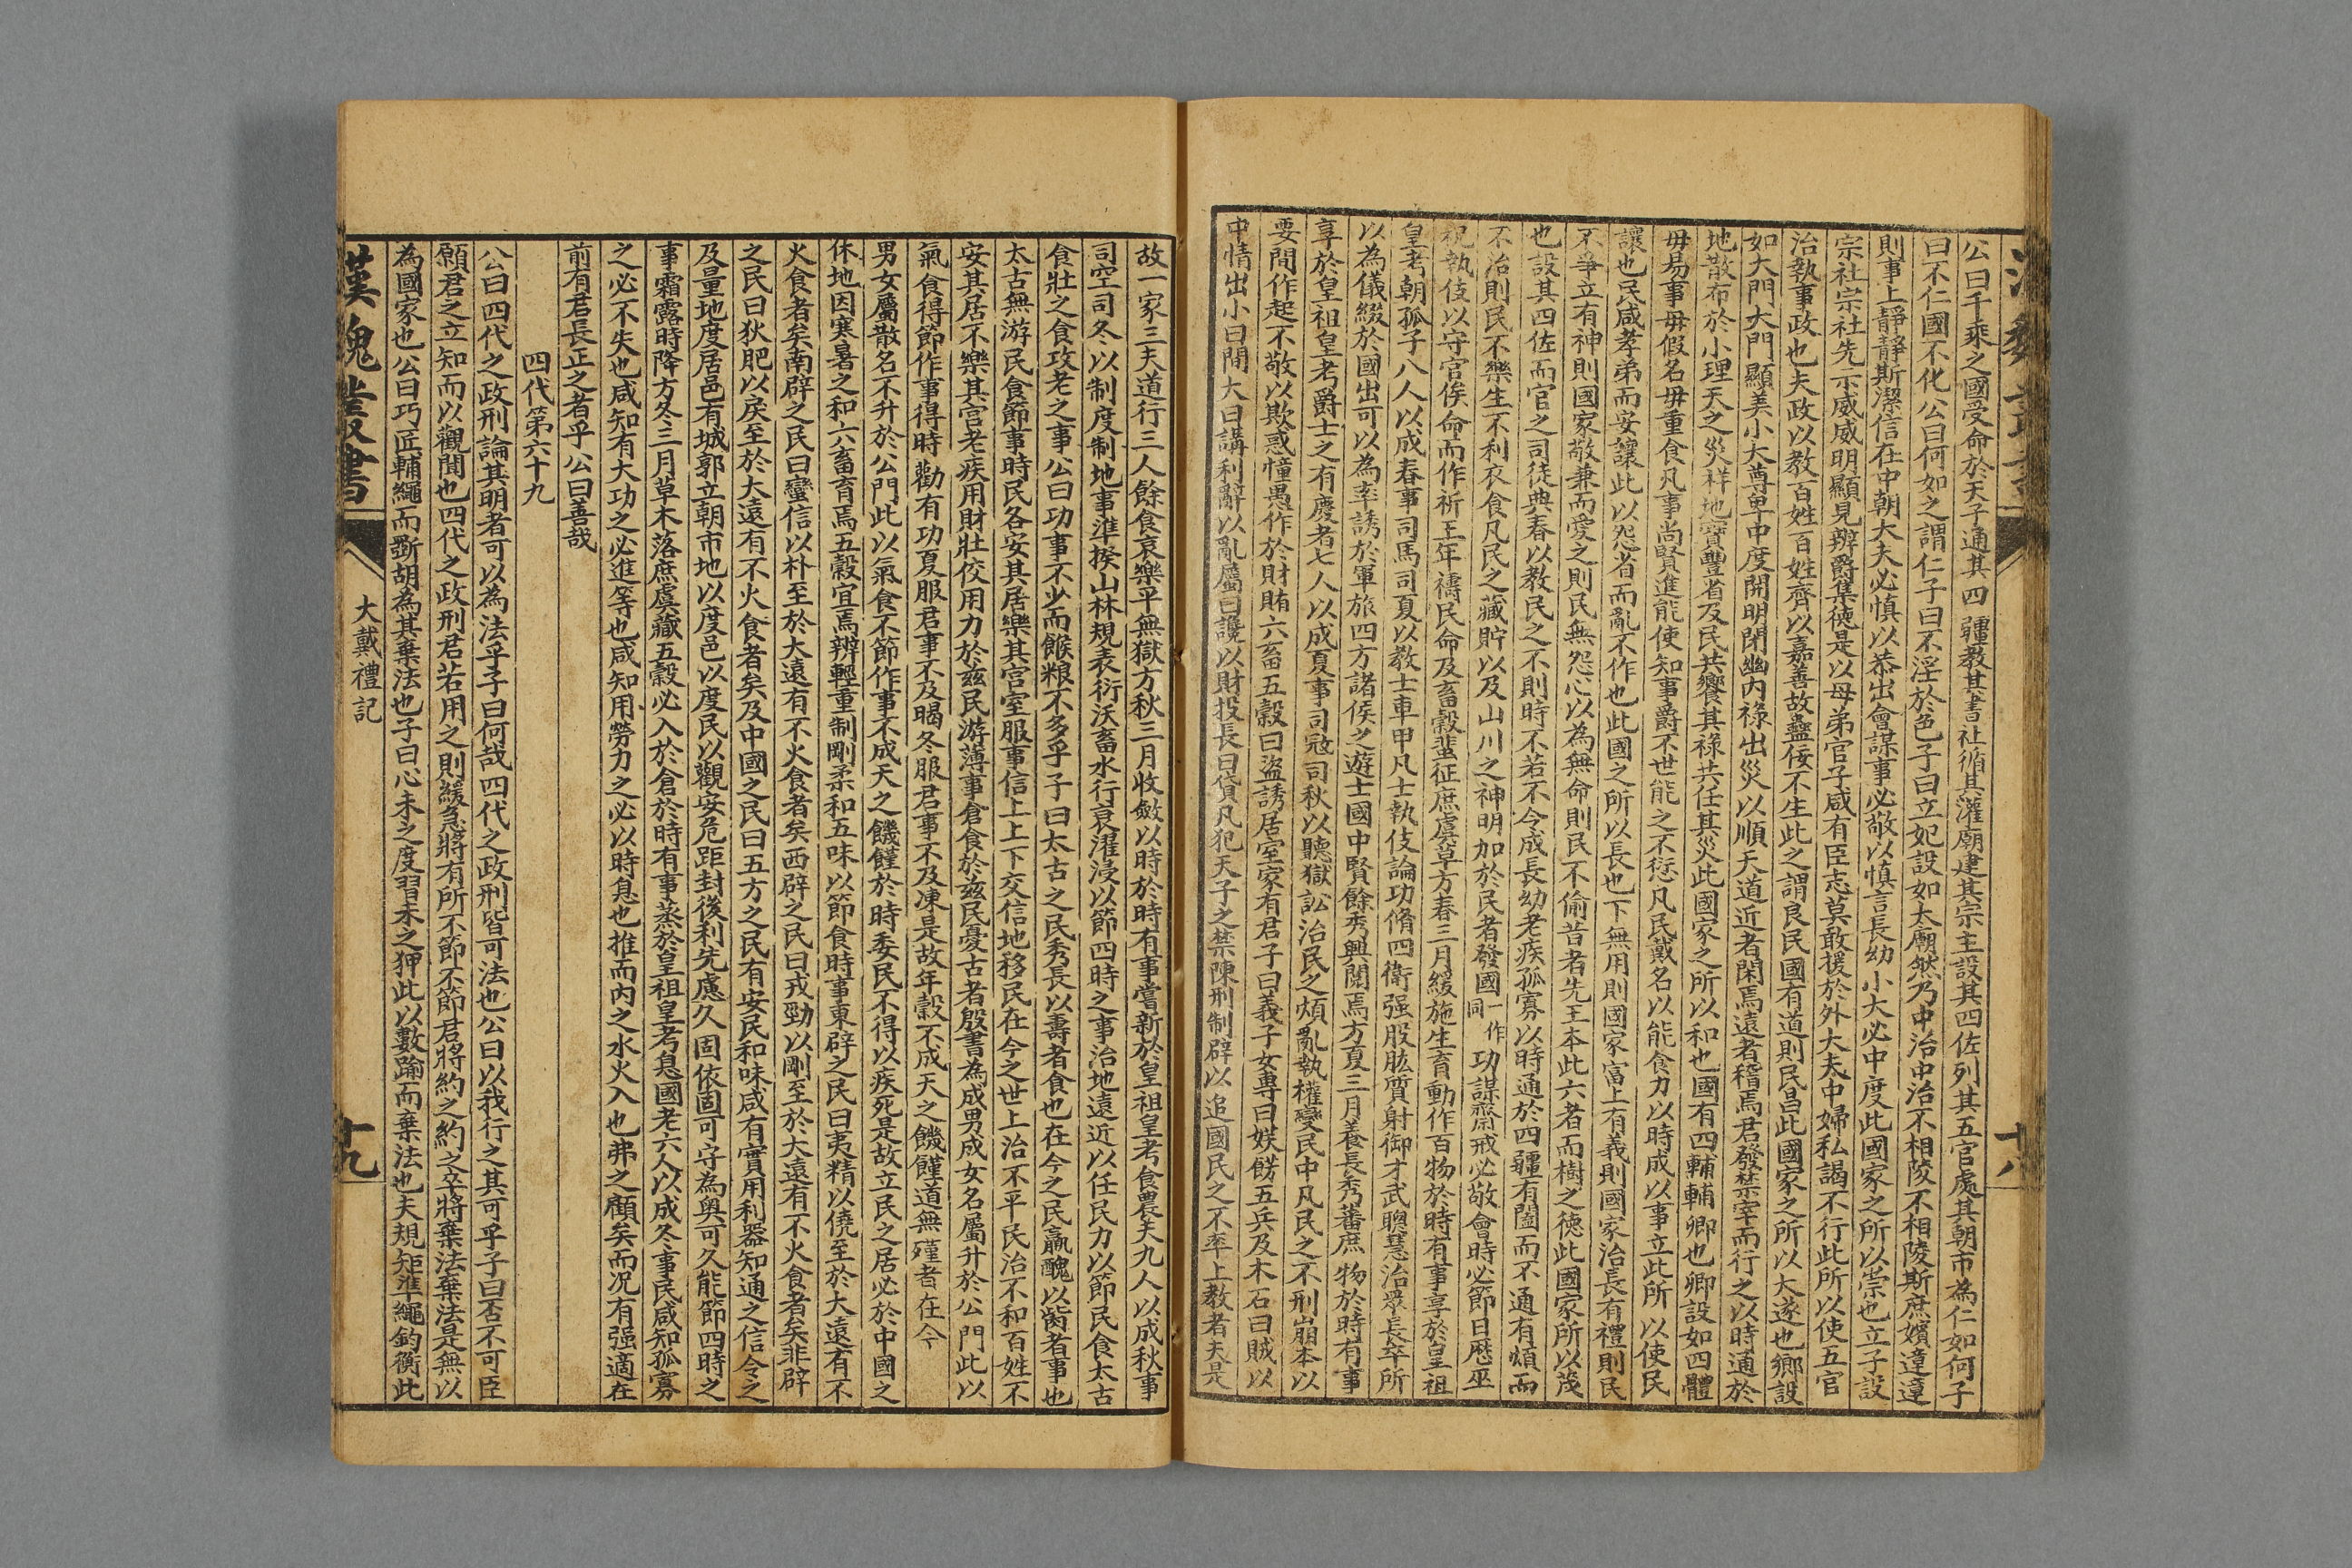 公曰千乘之國受命於天子通其四疆教其書社循其灌廟建其宗主設其四佐列其五官處其朝市為仁如何子
曰不仁國不化公曰何如之謂仁子曰不淫於色子曰立妃設如太廟然乃中治中治不相陵不相陵斯庶嬪違違
則事上靜靜斯潔信在中朝大夫必慎以恭出會謀事必敬以慎言長幼小大必中度此國家之所以崇也立子設
宗社宗社先示威威明顯見辨爵集德是以母弟官子咸有臣志莫敢援於外大夫中婦私謁不行此所以使五官
治執事政也夫政以教百姓百姓齊以嘉善故蠱佞不生此之謂良民國有道則民昌此國家之所以大遂也鄉設
如大門大門顯美小大尊卑中度開明閉幽內祿出災以順天道近者閑焉遠者稽焉君發禁宰而行之以時通於
地散布於小理天之災祥地寶豐省及民共饗其祿共任其災此國家之所以和也國有四輔輔卿也卿設如四體
毋易事毋假名毋重食凡事尚賢進能使知事爵不世能之不愆凡民戴名以能食力以時成以事立此所以使民
讓也民咸孝弟而安讓此以怨省而亂不作也此國之所以長也下無用則國家富上有義則國家治長有禮則民
不爭立有神則國家敬兼而愛之則民無怨心以為無命則民不偷昔者先王本此六者而樹之德此國家所以茂
也設其四佐而官之司徒典春以教民之不則時不若不令成長幼老疾孤寡以時通於四疆有闔而不通有煩而
不治則民不樂生不利衣食凡民之藏貯以及山川之神明加於民者發國一作同功謀齋戒必敬會時必節日歷巫
祝執伎以守官俟命而作祈王年禱民命及畜穀蜚征庶虞草方春三月緩施生育動作百物於時有事享於皇祖
皇考朝孤子八人以成春事司馬司夏以教士車甲凡士執伎論功脩四衛强股肱質射御才武聰慧治眾長卒所
以為儀綴於國出可以為率誘於軍旅四方諸侯之遊士國中賢餘秀興閱焉方夏三月養長秀蕃庶物於時有事
享於皇祖皇考爵士之有慶者七人以成夏事司寇司秋以聽獄訟治民之煩亂執權變民中凡民之不刑崩本以
要間作起不敬以欺惑憧愚作於財賄六畜五穀曰盜誘居室家有君子曰義子女專曰娱餝五兵及木石曰賊以
中情出小曰間大曰講利辭以亂屬曰讒以財投長曰貸凡犯天子之禁陳刑制辟以追國民之不率上教者夫是
十八
故一家三夫道行三人餘食哀樂平無獄方秋三月收斂以時於時有事嘗新於皇祖皇考食農夫九人以成秋事
司空司冬以制度制地事準揆山林規表衍沃畜水行衰濯浸以節四時之事治地遠近以任民力以節民食太古
食壯之食攻老之事公曰功事不少而餱粮不多乎子曰太古之民秀長以壽者食也在今之民羸醜以胔者事也
太古無游民食節事時民各安其居樂其宮室服事信上上下交信地移民在今之世上治不平民治不和百姓不
安其居不樂其宮老疾用財壯佼用力於兹民游薄事倉食於兹民憂古者殷書為成男成女名屬升於公門此以
氣食得節作事得時勸有功夏服君事不及暍冬服君事不及凍是故年穀不成天之饑饉道無殣者在今
男女屬散名不升於公門此以氣食不節作事不成天之饑饉於時委民不得以疾死是故立民之居必於中國之
休地因寒暑之和六畜育焉五穀宜焉辨輕重制剛柔和五味以節食時事東辟之民曰夷精以僥至於大遠有不
火食者矣南辟之民曰蠻信以朴至於大遠有不火食者矣西辟之民曰戎勁以剛至於大遠有不火食者矣非辟
之民曰狄肥以戾至於大遠有不火食者矣及中國之民曰五方之民有安民和味咸有實用利器知通之信令之
及量地度居邑有城郭立朝市地以度邑以度民以觀安危距封後利先慮久固依固可守為奧可久能節四時之
事霜露時降方冬三月草木落庶虞藏五穀必入於倉於時有事蒸於皇祖皇考息國老六人以成冬事民咸知孤寡
之必不失也咸知有大功之必進等也咸知用勞力之必以時息也推而內之水火入也弗之顧矣而况有强適在
前有君長正之者乎公曰善哉
四代第六十九
公曰四代之政刑論其明者可以為法乎子曰何哉四代之政刑皆可法也公曰以我行之其可乎子曰否不可臣
願君之立知而以觀聞也四代之政刑君若用之則緩急將有所不節不節君將約之約之卒將棄法棄法是無以
為國家也公曰巧匠輔繩而斲胡為其棄法也子曰心未之度習未之狎此以數踰而棄法也夫規矩準繩鈞衡此
漢魏叢書
大戴禮記
十九